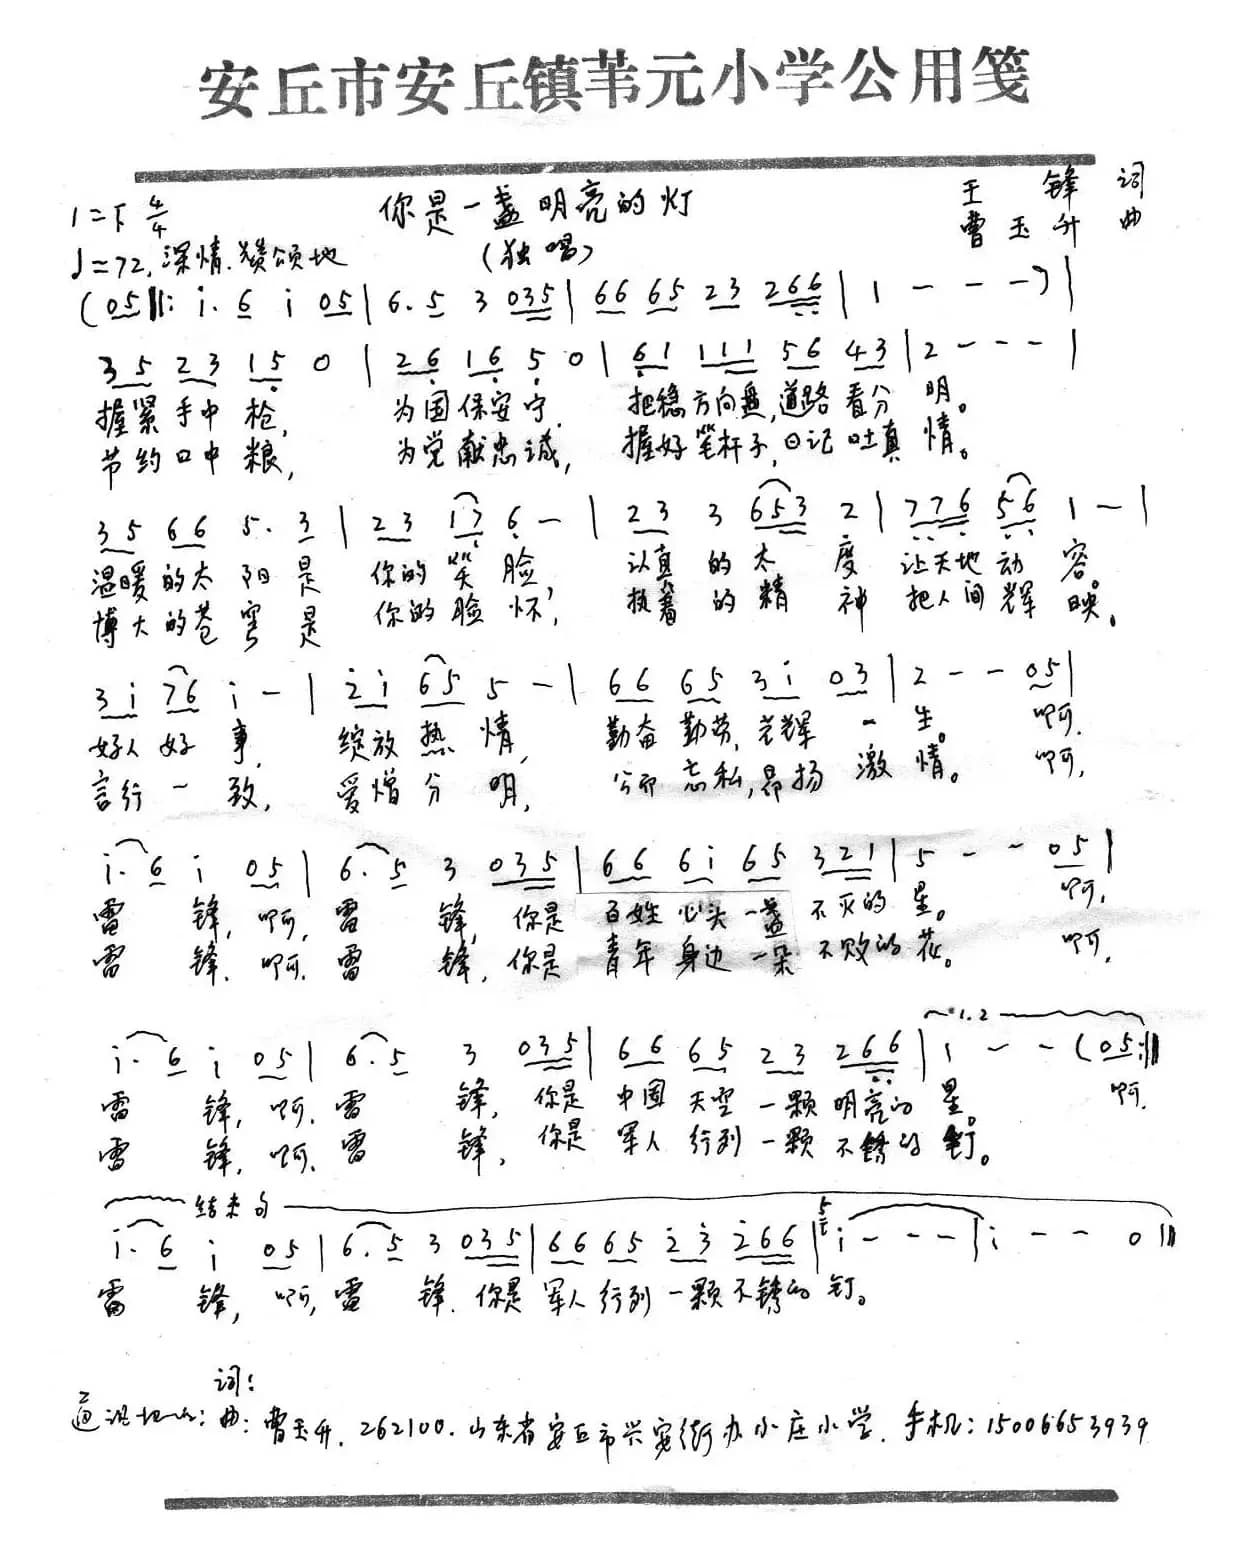 安丘市安丘镇苇元小学公用笺
1=F 4/4 你是一盏明亮的灯 王锋 词
曹玉升 曲
♩=72, 深情、赞颂地 (独唱)
(05‖: i. 6 i 05 | 6. 5 3 035 | 66 65 23 266 | 1 - - -) |
35 23 15 0 | 26 16 5 0 | 61 111 56 43 | 2 - - - |
握紧手中枪, 为国保安宁. 把稳方向盘,道路看分明。
节约口中粮, 为党献忠诚, 握好笔杆子,日记吐真情。
35 66 5. 3 | 23 17 6 - | 23 3 653 2 | 776 56 1 - |
温暖的太阳是 你的笑脸, 认真的太度 让天地动容。
博大的苍穹是 你的脸怀, 执着的精神 把人间辉映。
3i 76 i - | 2i 65 5 - | 66 65 3i 03 | 2 - - 05 |
好人好事, 绽放热情, 勤奋勤劳,光辉一生。 啊.
言行一致, 爱憎分明, 公而忘私,昂扬激情。 啊,
i. 6 i 05 | 6. 5 3 035 | 66 6i 65 321 | 5 - - 05 |
雷锋,啊,雷锋,你是百姓心头一盏不灭的星。 啊,
雷锋.啊.雷锋,你是青年身边一朵不败的花。 啊,
1.2
i. 6 i 05 | 6. 5 3 035 | 66 65 23 266 | 1 - - (05:‖
雷锋,啊.雷锋,你是中国天空一颗明亮的星。 啊.
雷锋,啊.雷锋,你是军人行列一颗不锈的钉。
结束句
i. 6 i 05 | 6. 5 3 035 | 66 65 23 266 | 5 i - - - | i - - 0 ‖
雷锋,啊,雷锋.你是军人行列一颗不锈的钉。
词:
通讯地址: 曲: 曹玉升. 262100. 山东省安丘市兴安街办小庄小学. 手机: 15006653939